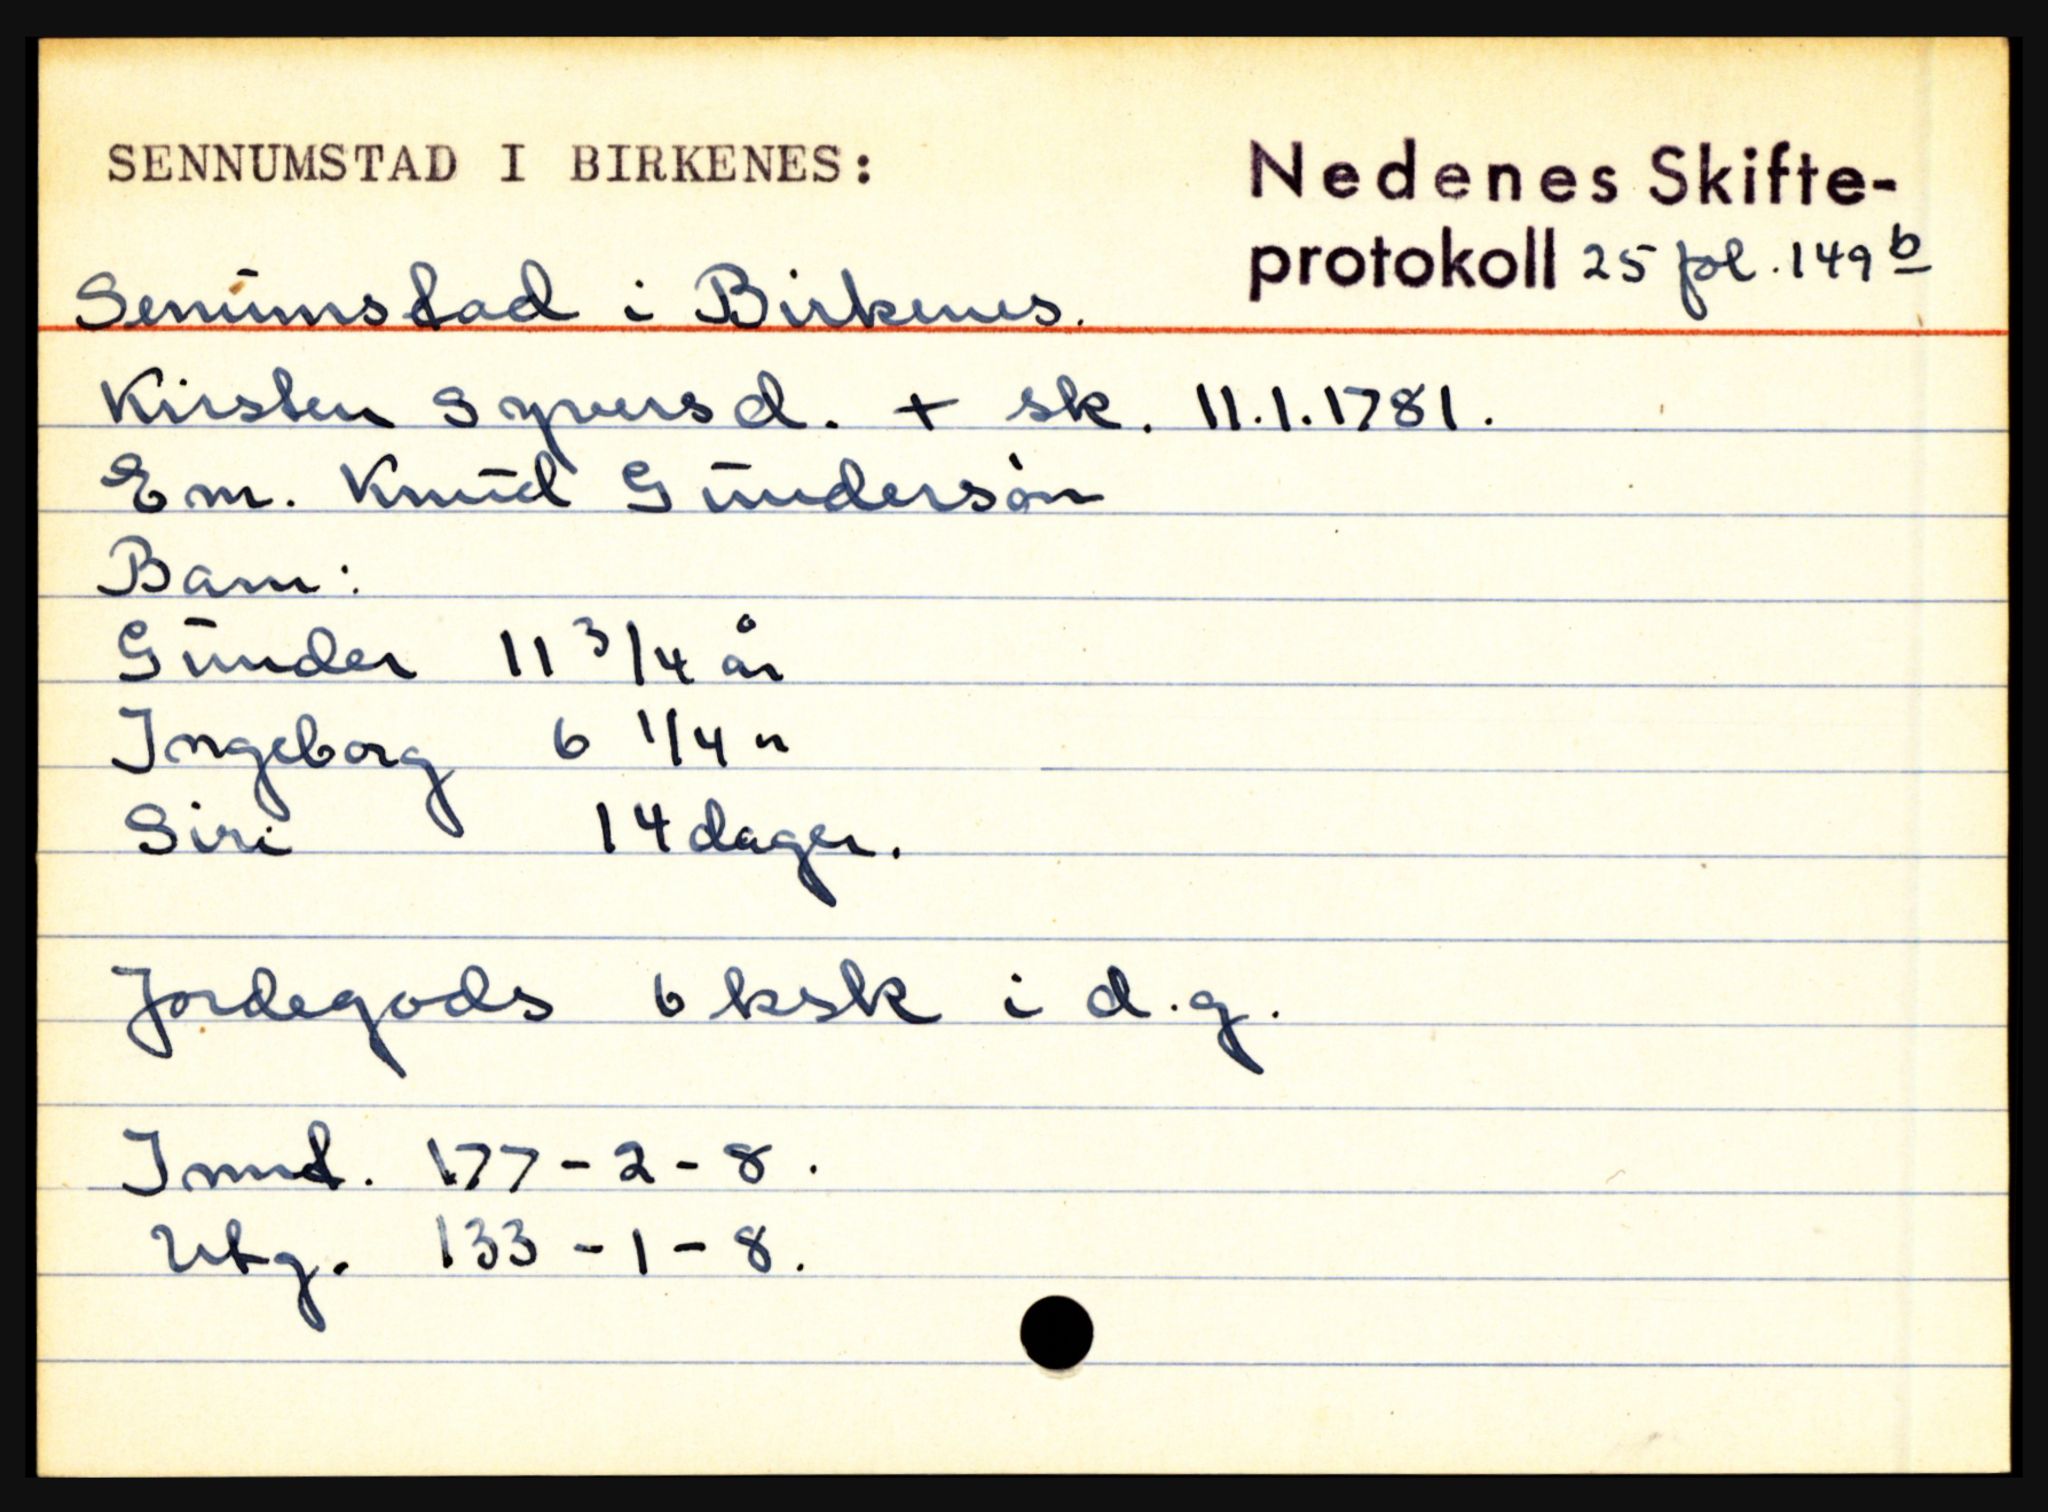 SENNUMSTAD I BIRKENES:
Nedenes Skifte-
protokoll 25 fol. 149 b
Senumstad i Birkenes.
Kirsten Syversd. + sk. 11.1.1781.
Em. Knud Gundersön
Barn:
Gunder 11 3/4 år
Ingeborg 6 1/4 "
Siri 14 dager.
Jordegods 6 ksk i d.g.
Innt. 177-2-8.
Utg. 133-1-8.